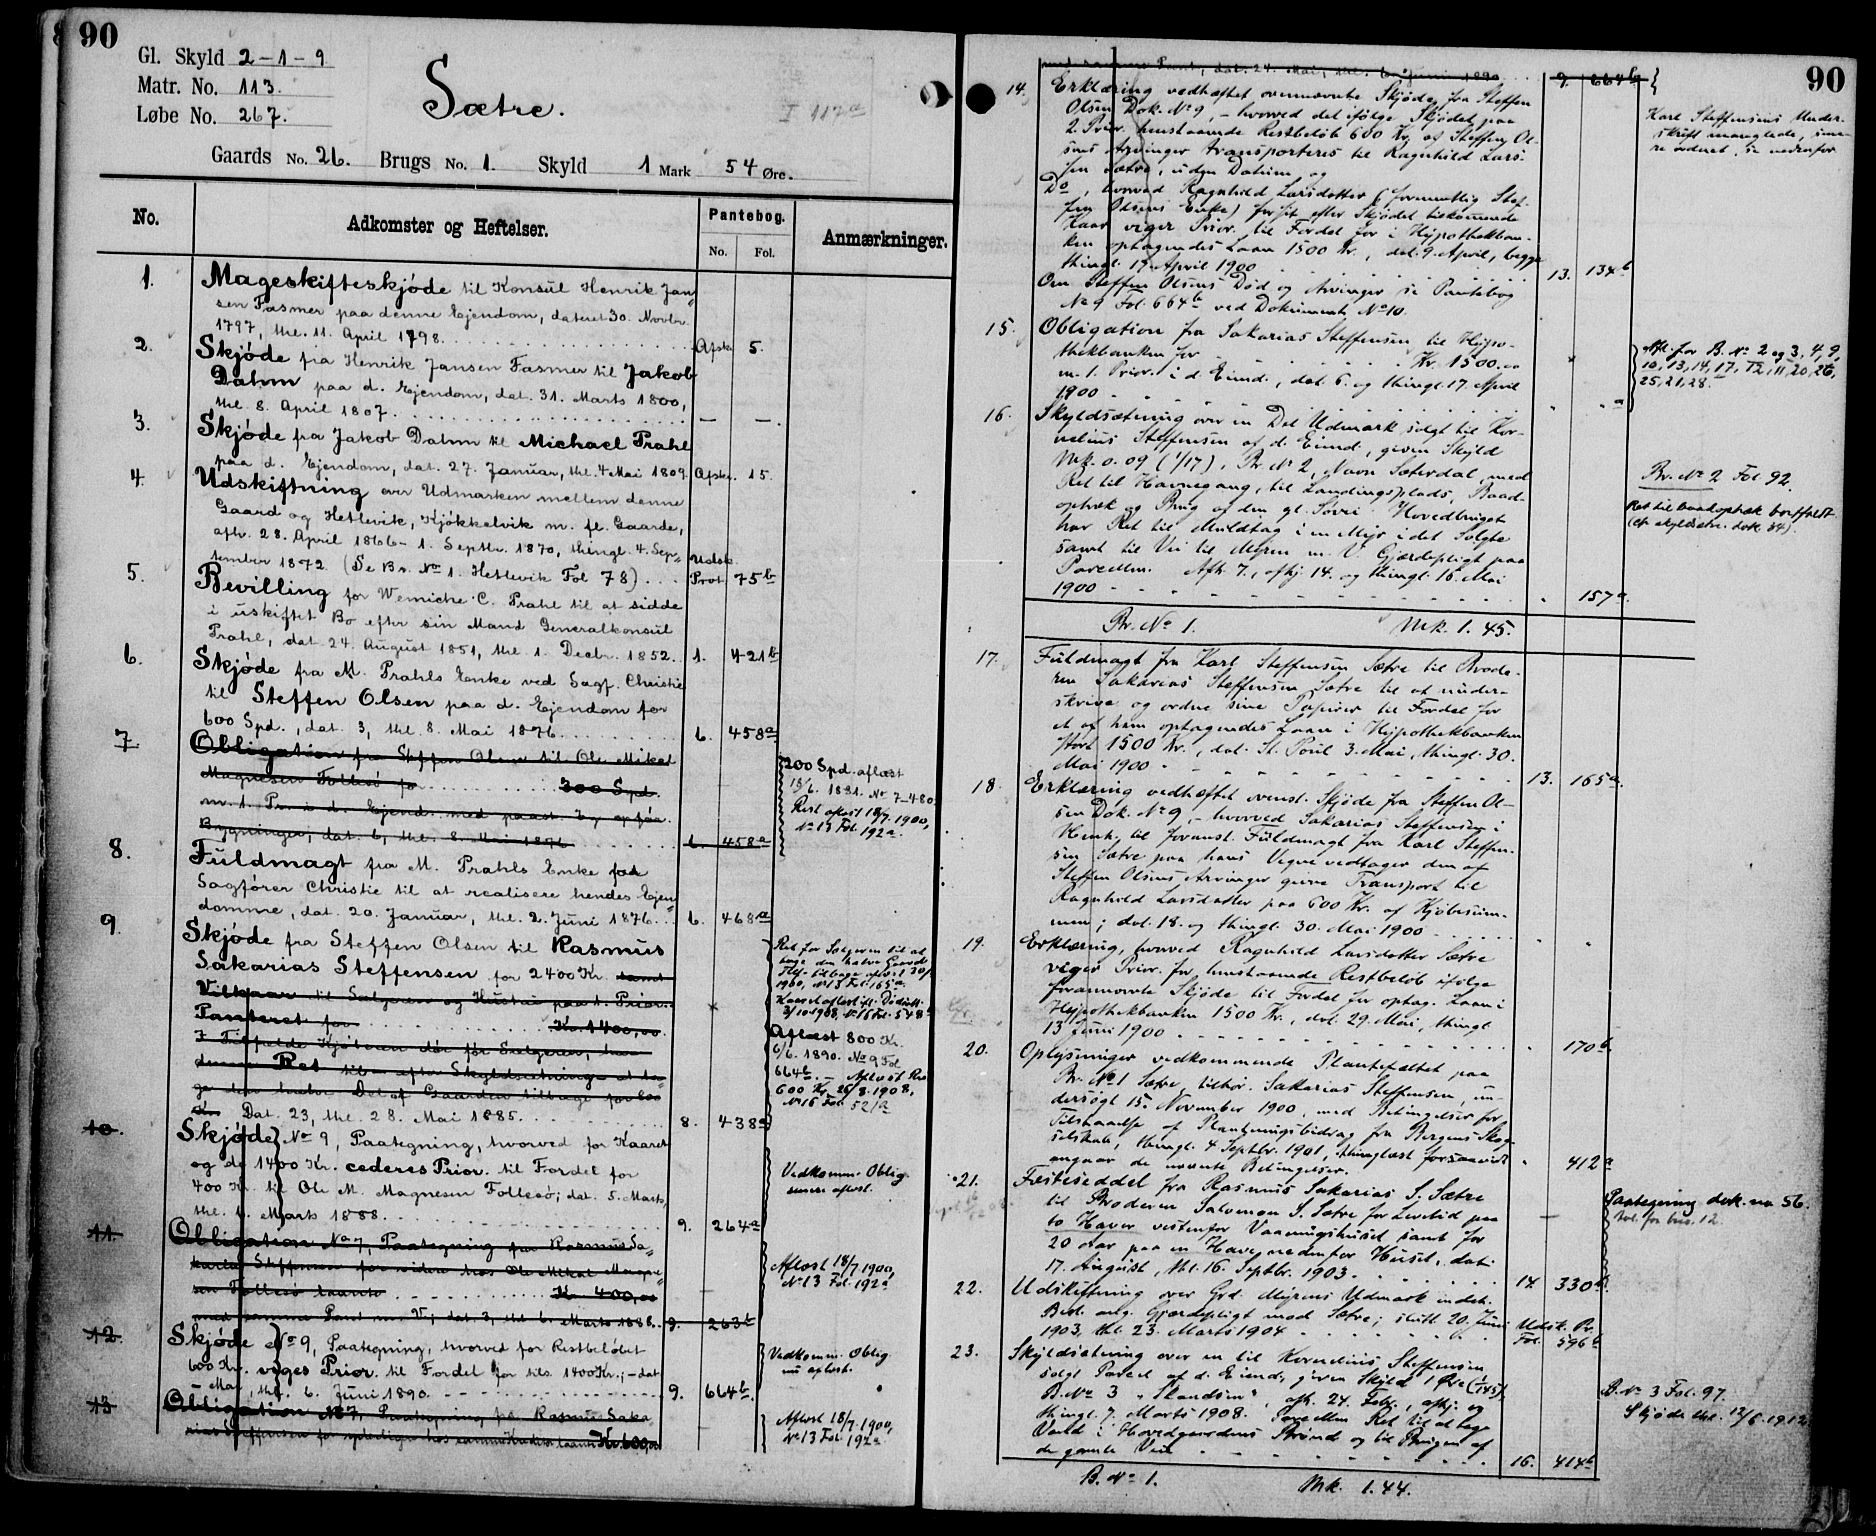 90
Gl. Skyld 2-1-9
Matr. No. 113.
Løbe No. 267.
Sætre.
I 117a
Gaards No. 26. Brugs No. 1. Skyld 1 Mark 54 Øre.
No. Adkomster og Heftelser. Pantebog. Anmærkninger.
No. Fol.
1. Mageskifteskjøde til Konsul Henrik Jan-
sen Fasmer paa denne Ejendom, dateret 30. Novbr.
1797, thl. 11. April 1798. Afsk. 5.
2. Skjøde fra Henrik Jansen Fasmer til Jakob
Dahm paa d. Ejendom, dat. 31. Marts 1800,
thl. 8. April 1807. — —.
3. Skjøde fra Jakob Dahm til Michael Prahl
paa d. Ejendom, dat. 27. Januar, thl. 4. Mai 1809. Afsk. 15.
4. Udskiftning over Udmarken mellem denne
Gaard og Hetlevik, Kjøkkelvik m. fl. Gaarde,
afh. 28. April 1866 - 1. Septbr. 1870, thingl. 4. Sep-
tember 1872 (Se Br. No 1. Hetlevik Fol 78) Udsk. Prot. 75b
5. Bevilling for Wenicke C. Prahl til at sidde
i uskiftet Bo efter sin Mand Generalkonsul
Prahl, dat. 24. August 1851, thl. 1. Decbr. 1852. 1. 421b
6. Skjøde fra M. Prahls Enke ved Sagf. Christie
til Steffen Olsen paa d. Ejendom for
600 Spd., dat. 3, thl. 8. Mai 1876. 6. 458a
7. Obligation fra Steffen Olsen til Ole Mikal
Magnesen Follesø for 300 Spd.
m. 1. Pr. i d. Ejend. med paast. og opfør.
Bygninger, dat. 6, thl. 8. Mai 1876 6. 458a
200 Spd. aflæst
13/6. 1881. No 7-480
Rest aflæst 18/7. 1900,
No 13 Fol. 192a.
8. Fuldmagt fra M. Prahls Enke for
Sagfører Christie til at realisere hendes Ejen-
domme, dat. 20. Januar, thl. 2. Juni 1876. 6. 468a
9. Skjøde fra Steffen Olsen til Rasmus
Sakarias Steffensen for 2400 Kr. samt
Vilkaar til Sælgeren og Hustru paa 1. Prior.
Panteret for Kr. 1400,00.
I Tilfælde Kjøberen dør før Sælgeren, har
denne Ret til efter Skyldsætning at ta-
ge den halve Del af Gaarden tilbage for 600
Kr. Dat. 23, thl. 28. Mai 1885. 8. 438a
Ret for Sælgeren til at
tage den halve Gaards
Del tilbage aflæst 30/5
1900, No 13 Fol. 165a.
Kaaret aflæst ifl. Dødsatt.
3/10 1908, No 16 Fol. 548
Aflæst 800 Kr.
6/6. 1890. No 9 Fol
664b. — Aflæst Res
600 Kr. 26/8. 1908,
No 16 Fol. 521a
10. Skjøde No 9, Paategning, hvorved for Kaaret
og de 1400 Kr. cederes Prior. til Fordel for
400 Kr. til Ole M. Magnesen Follesø; dat. 5. Marts,
thl. 6. Marts 1888. 9. 264a
Vedkomm. Oblig.
senere aflæst.
11. Obligation No 7, Paategning fra Rasmus Sa-
karias Steffensen for videre hos Ole Mikal Magne-
sen Follesø laante Kr. 400,00
med samme Pant m. V., dat. 3, thl. 6. Marts 1888. 9. 263b
Aflæst 18/7 1900,
No 13 Fol. 192a
12. Skjøde No 9, Paategning, hvorved for Restbeløbet
600 Kr. viges Prior. til Fordel for tils. 1400 Kr.; dat
- Mai, thl. 6. Juni 1890. 9. 664b.
Vedkomm. Oblig
nu aflæst.
13. Obligation No 7, Paategning fra Rasmus Saka-
rias Steffensen for yderligere hos samme Kreditor laante Kr. 600,00
Aflæst 18/7 1900,
No 13 Fol 192a
90
med samme Pant, dat. 24. Mai, thl. 6. Juni 1890 9. 664b
14. Erklæring vedhæftet ovennævnte Skjøde fra Steffen
Olsen Dok. No 9, - hvorved det ifølge Skjødet paa
2. Prior. henstaaende Restbeløb 600 Kr. af Steffen Ol-
sens Arvinger transporteres til Ragnhild Lars-
sen Sætre, uden Datum og
Do, hvorved Ragnhild Larsdatter (formentlig Stef-
fen Olsens Enke) for sit efter Skjødet tilkommende
Kaar viger Prior. til Fordel for i Hypothekban-
ken optagendes Laan 1500 Kr., dat. 9. April, begge
thingl. 17. April 1900 13. 134b
Om Steffen Olsens Død og Arvinger se Pantebog
No 9 Fol. 664b ved Dokument No 10.
Karl Steffensens Under-
skrift manglede, sene-
re ordnet, se nedenfor
15. Obligation fra Sakarias Steffensen til Hypo-
thekbanken for Kr. 1500.00
m. 1. Prior. i d. Eiend., dat. 6. og thingl. 17. April
1900
Afl. for B. No 2 og 3, 4, 9,
10, 13, 14, 17, 12, 11, 20, 26,
25, 21, 28.
16. Skyldsætning over en Del Udmark solgt til Kor-
nelius Steffensen af d. Eiend., given Skyld
Mk. 0.09 (1/17), Br. No 2, Navn Sæterdal, med
Ret til Havnegang, til Landingsplads, Baad-
optræk og Brug af den gl. Sovei. Hovedbruget
har Ret til Muldtag i en Myr i det Solgte
samt til Vei til Myren m. V. Gjærdepligt paa
Parcellen. Afh. 7., afhj. 14. og thingl. 16. Mai
1900 157a.
Br. No 2 Fol. 92.
Ret til baadoptræk bortfaldt
(cfr. skyldsætn. dok. 34).
Br. No 1. Mk. 1.45.
17. Fuldmagt fra Karl Steffensen Sætre til Brode-
ren Sakarias Steffensen Sætre til at under-
skrive og ordne sine Papirer til Fordel for
et af ham optagendes Laan i Hypothekbanken
stort 1500 Kr., dat. St. Poul 3. Mai, thingl. 30.
Mai 1900 13. 165a.
18. Erklæring vedhæftet ovenst. Skjøde fra Steffen Ol-
sen Dok. No 9, - hvorved Sakarias Steffensen i
Henh. til foranst. Fuldmagt fra Karl Steffen-
sen Sætre paa hans Vegne vedtager den af
Steffen Olsens Arvinger givne Transport til
Ragnhild Larsdatter paa 600 Kr. af Kjøbesum-
men; dat. 18. og thingl. 30. Mai 1900
19. Erklæring, hvorved Ragnhild Larsdatter Sætre
viger Prior. for henstaaende Restbeløb ifølge
forannævnte Skjøde til Fordel for optag. Laan i
Hypothekbanken 1500 Kr., dat. 29. Mai, thingl.
13 Juni 1900 170b.
20. Oplysninger vedkommende Plantefeltet paa
Br. No 1 Sætre, tilhør. Sakarias Steffensen, un-
dersøgt 15. November 1900, med Betingelser for
Tilstaaelse af Plantningsbidrag fra Bergens Skog-
selskab, thingl. 4 Septbr. 1901, thinglæst forsaavidt
angaar de nævnte Betingelser. 412a
21. Fæsteseddel fra Rasmus Sakarias S. Sætre
til Broderen Salomon S. Sætre for Levetid paa
to Haver vestenfor Vaaningshuset samt for
20 Aar paa en Have nedenfor Huset, dat.
17. August, thl. 16. Septbr. 1903. 14. 330a.
Paategning dok. no 56.
22. Udskiftning over Grd. Myrens Udmark indeh.
Best. ang. Gjærdepligt med Sætre; slutt. 20. Juni
1903, thl. 23. Marts 1904 Udsk. Pr. Fol. 596b
23. Skyldsætning over en til Kornelius Steffensen
solgt Parcel af d. Eiend., given Skyld 1 Øre (1/145),
B. No 3 "Strandheim", afh. 24. Febr., afhj. og
thingl. 7. Marts 1908. Parcellen Ret til at tage
Vand i Hovedgaardens Brønd og til Brugen af
de gamle Veie 16. 414b
B. No 3 Fol. 97.
Skjøde thl. 12/6. 1912
B. No 1. Mk. 1.44.